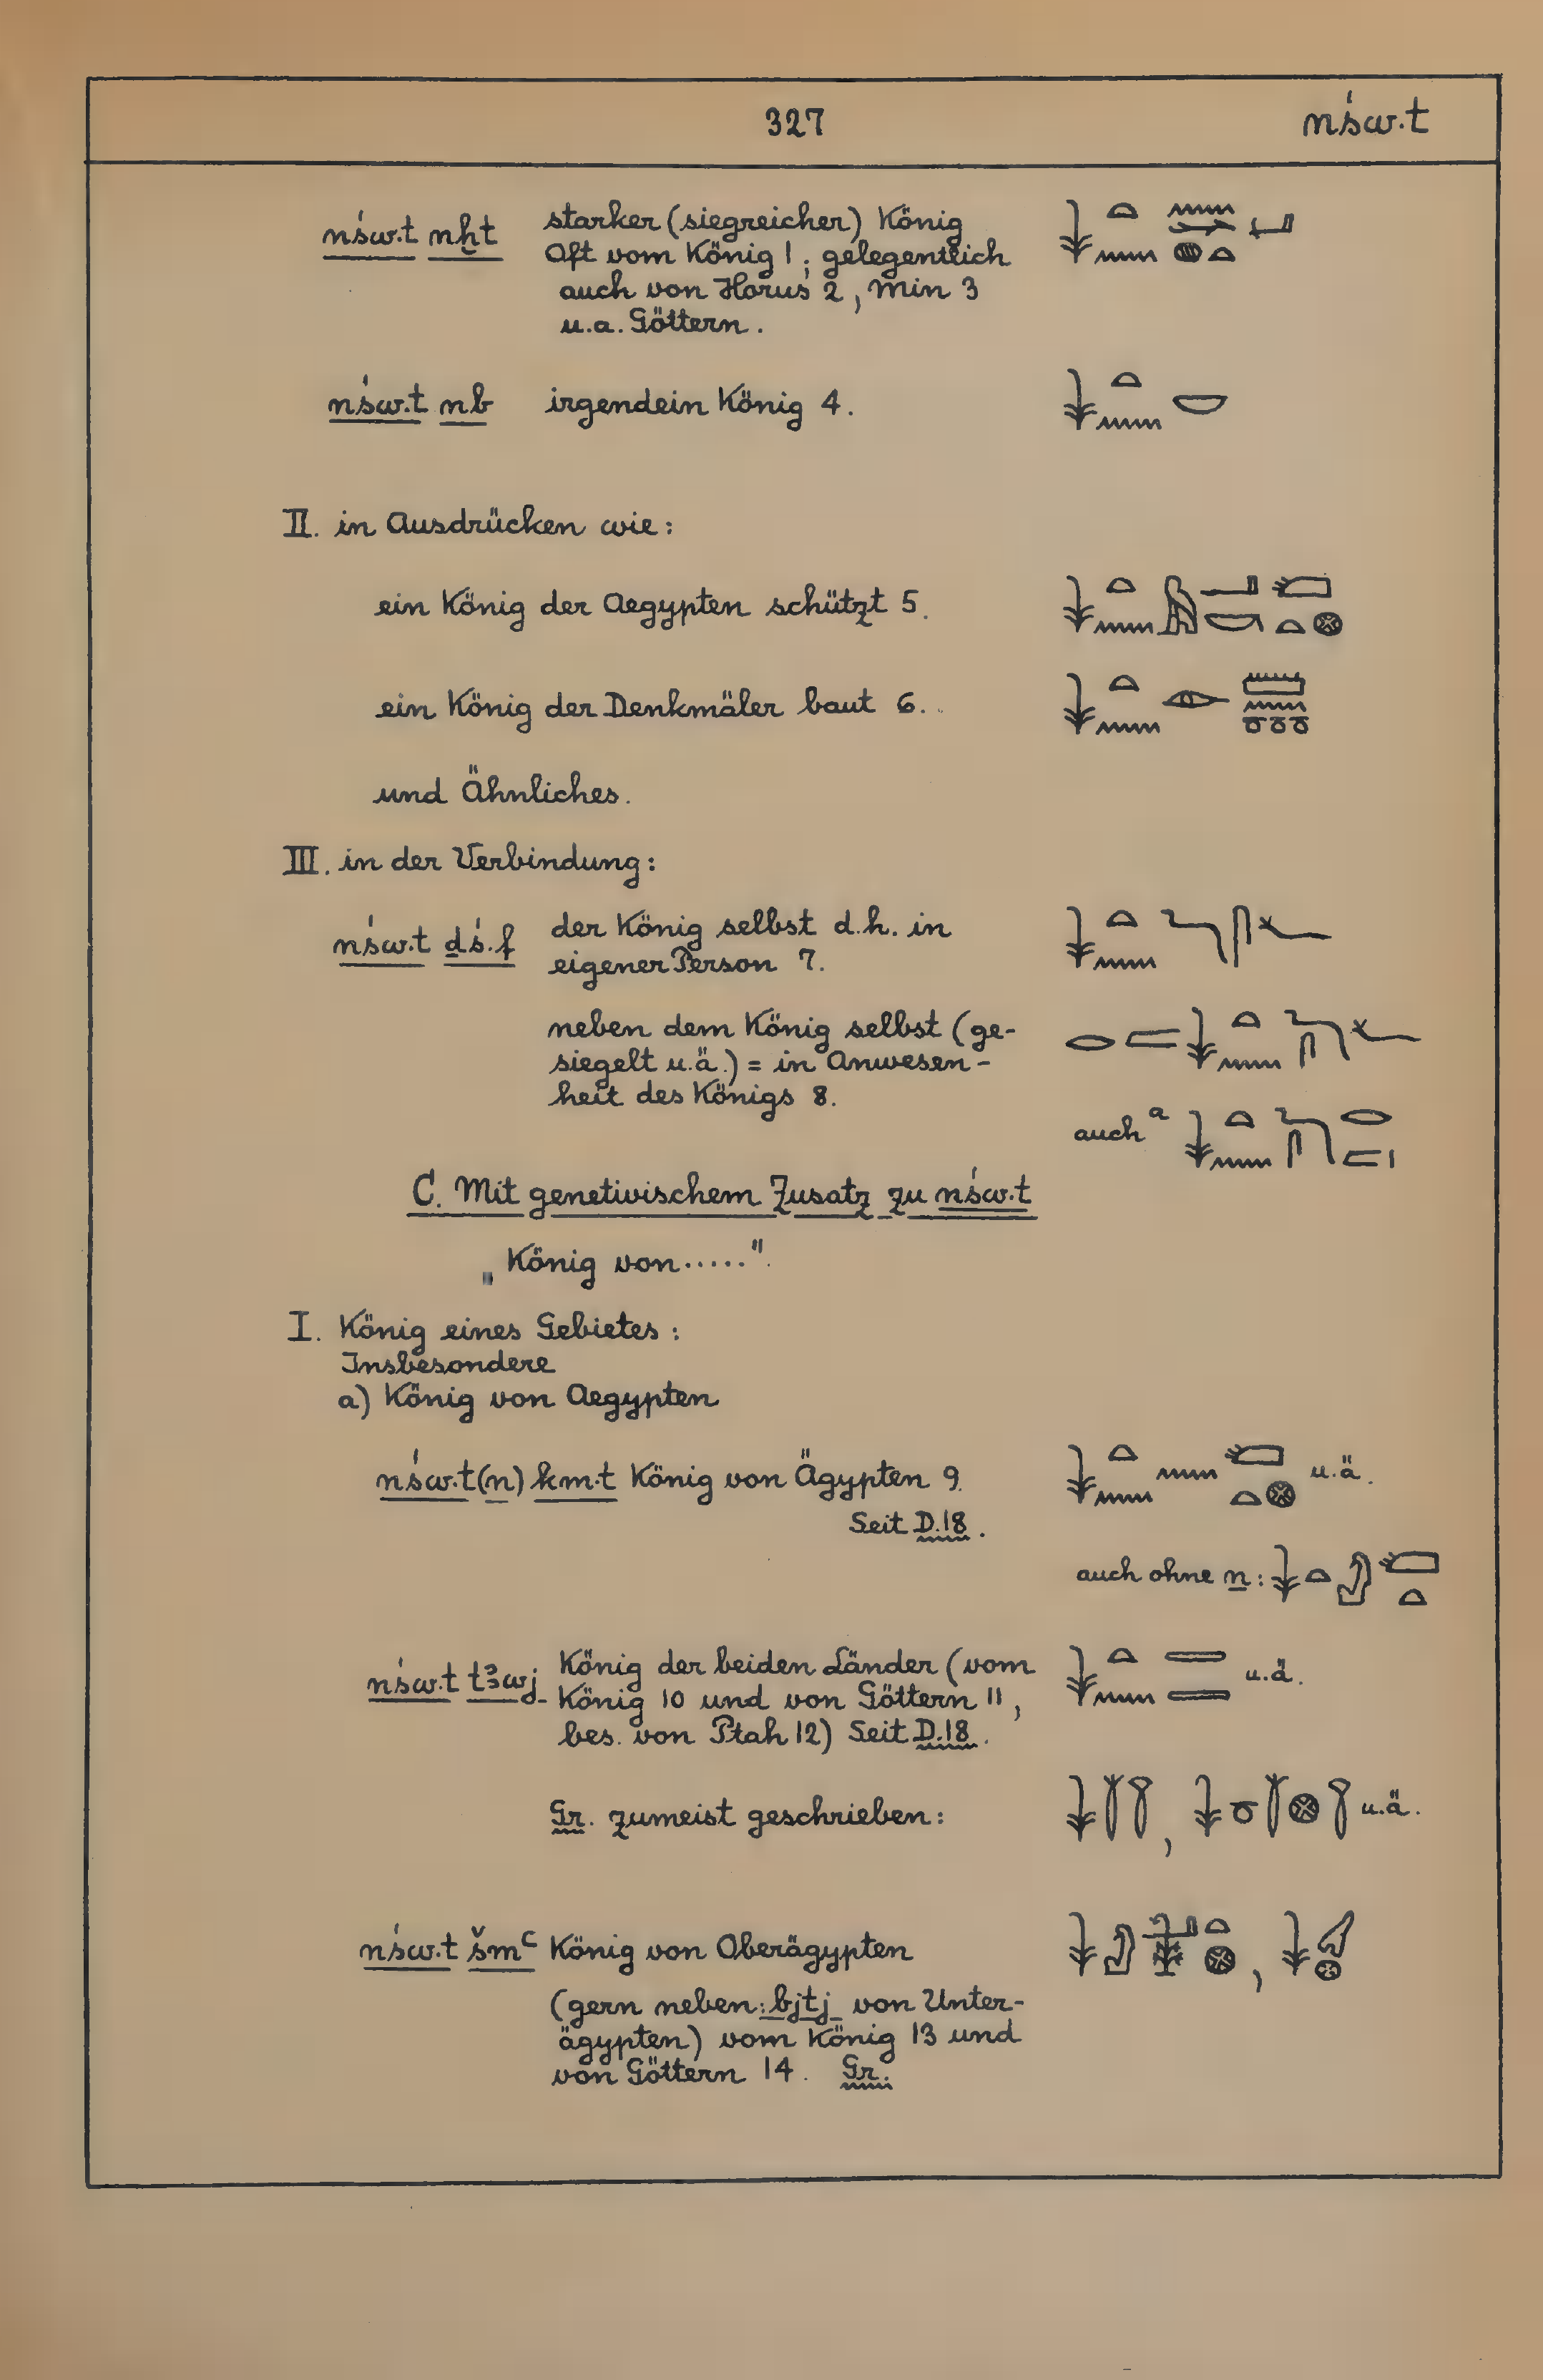 327 nśw.t
nśw.t nḫt starker (siegreicher) König
Oft vom König 1; gelegentlich
auch von Horus 2, Min 3
u.a. Göttern.
nśw.t nb irgendein König 4.
II. in Ausdrücken wie:
ein König der Aegypten schützt 5.
ein König der Denkmäler baut 6.
und Ähnliches.
III. in der Verbindung:
nśw.t ḏś.f der König selbst d.h. in
eigener Person 7.
neben dem König selbst (ge-
siegelt u.ä.) = in Anwesen-
heit des Königs 8.
auch a
C. Mit genetivischem Zusatz zu nśw.t
„König von.....".
I. König eines Gebietes:
Insbesondere
a) König von Aegypten
nśw.t (n) km.t König von Ägypten 9. u.ä.
Seit D.18.
auch ohne n:
nśw.t tꜣwj König der beiden Länder (vom
König 10 und von Göttern 11, u.ä.
bes. von Ptah 12) Seit D.18.
Gr. zumeist geschrieben: , u.ä.
nśw.t šmꜥ König von Oberägypten ,
(gern neben: bjtj von Unter-
ägypten) vom König 13 und
von Göttern 14. Gr.